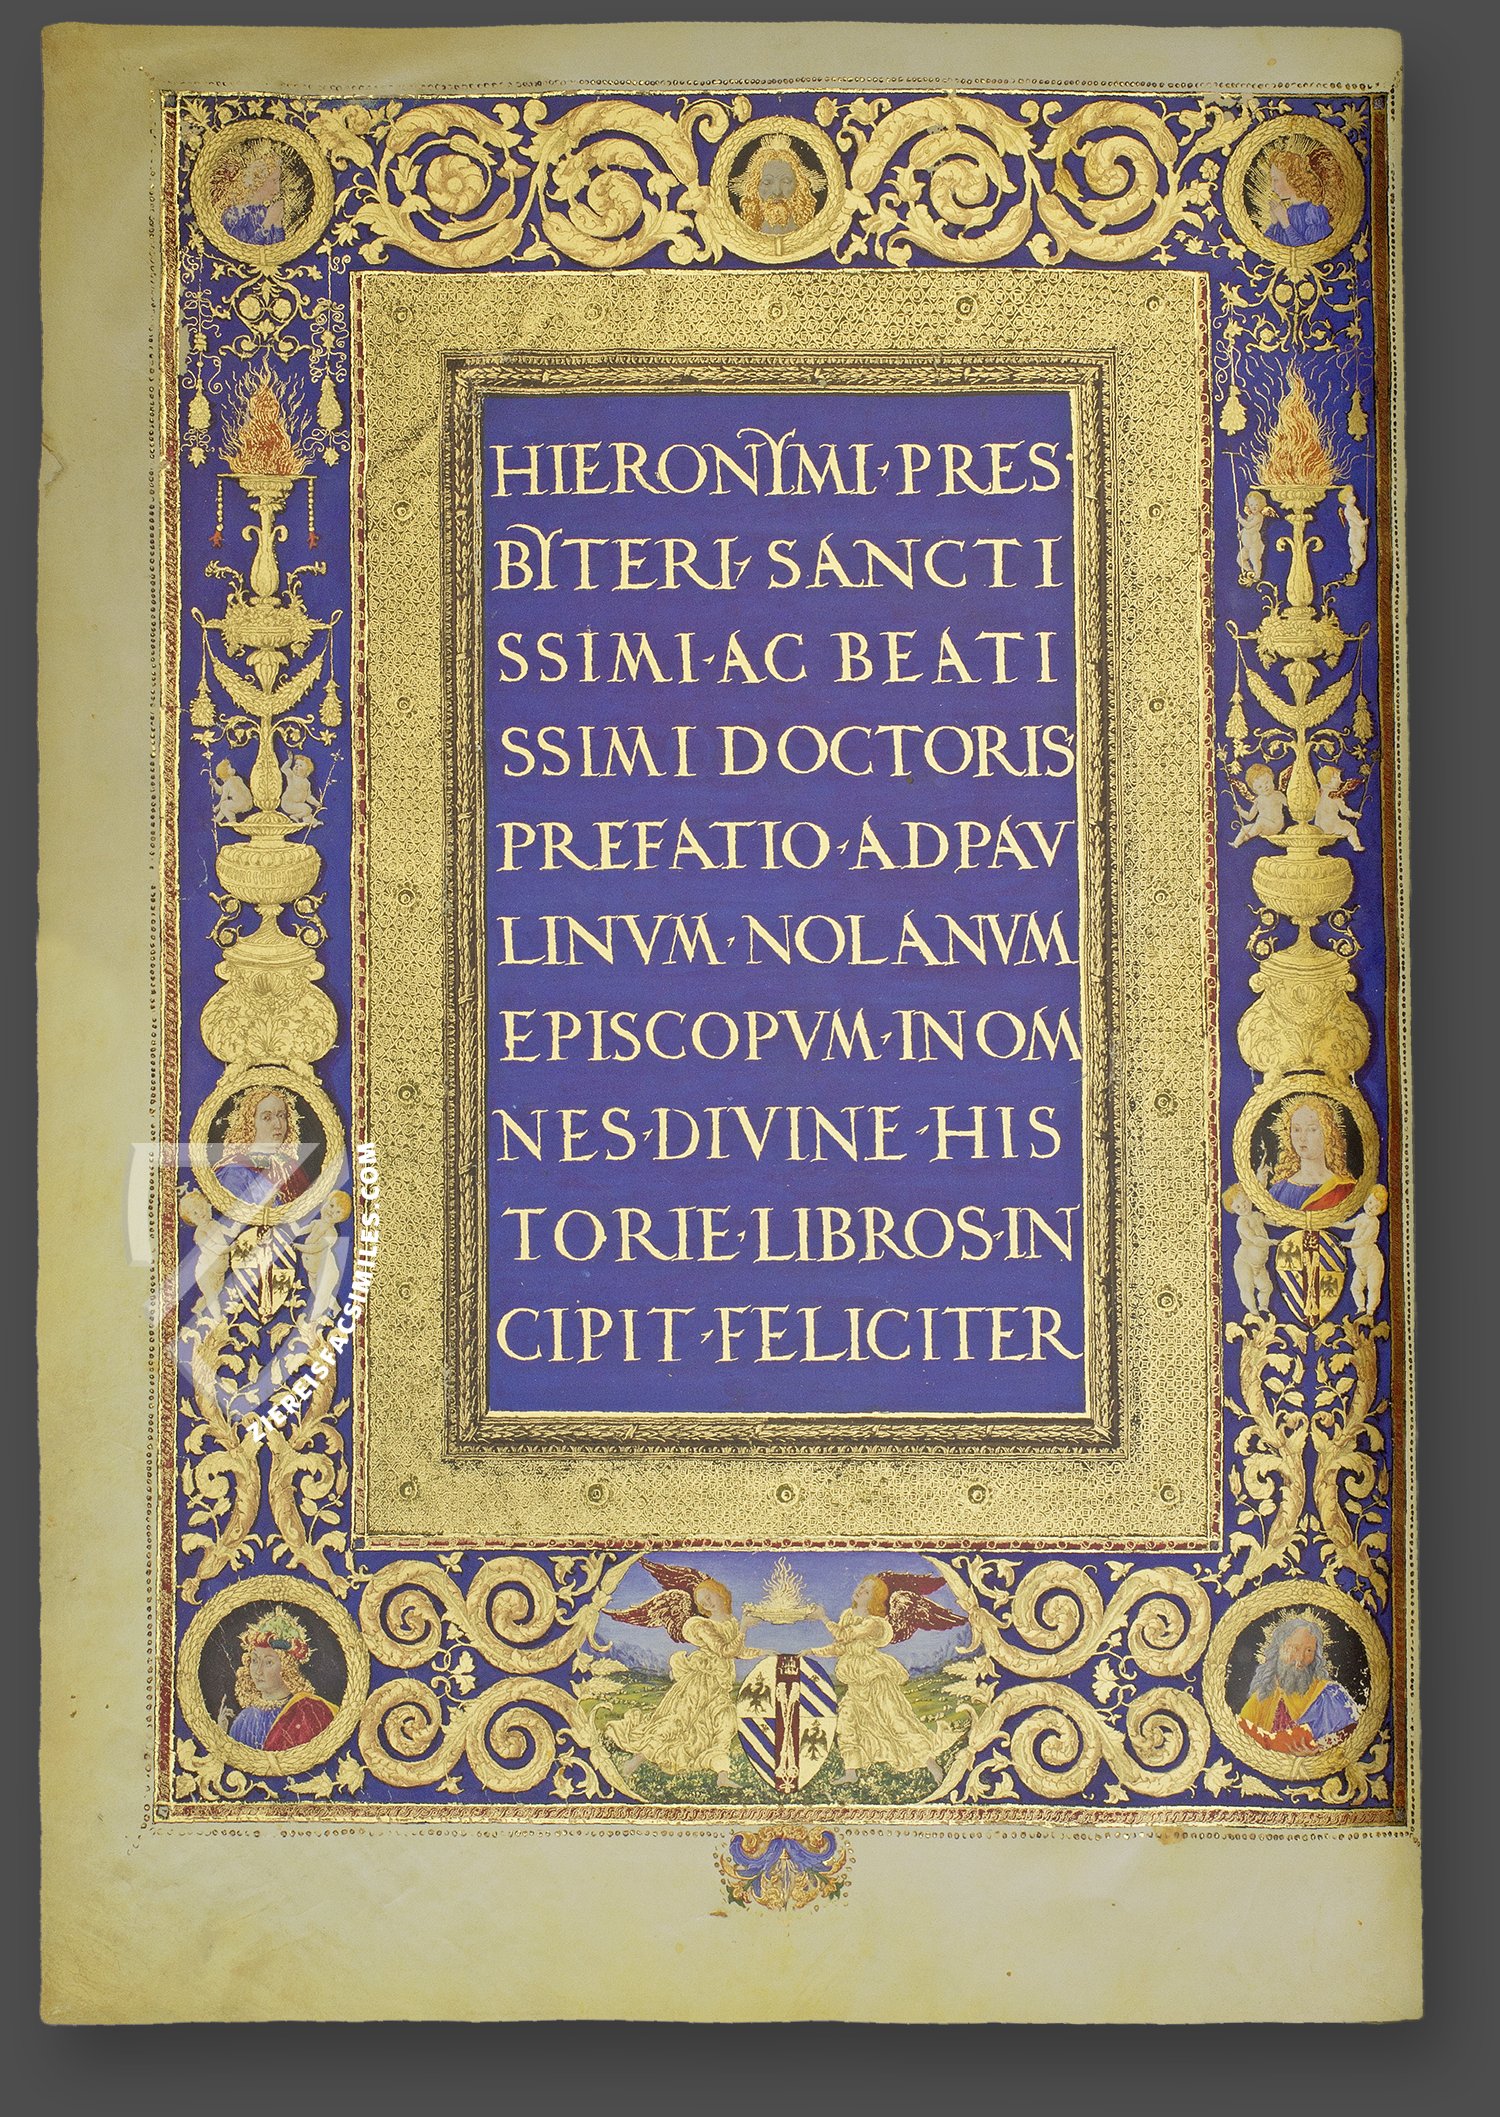 HIERONYMI·PRES·
BYTERI·SANCTI
SSIMI·AC BEATI
SSIMI DOCTORIS
PREFATIO·AD PAV
LINVM·NOLANVM
EPISCOPVM·IN OM
NES·DIVINE·HIS
TORIE·LIBROS·IN
CIPIT·FELICITER
ZIEREISFACSIMILES.COM